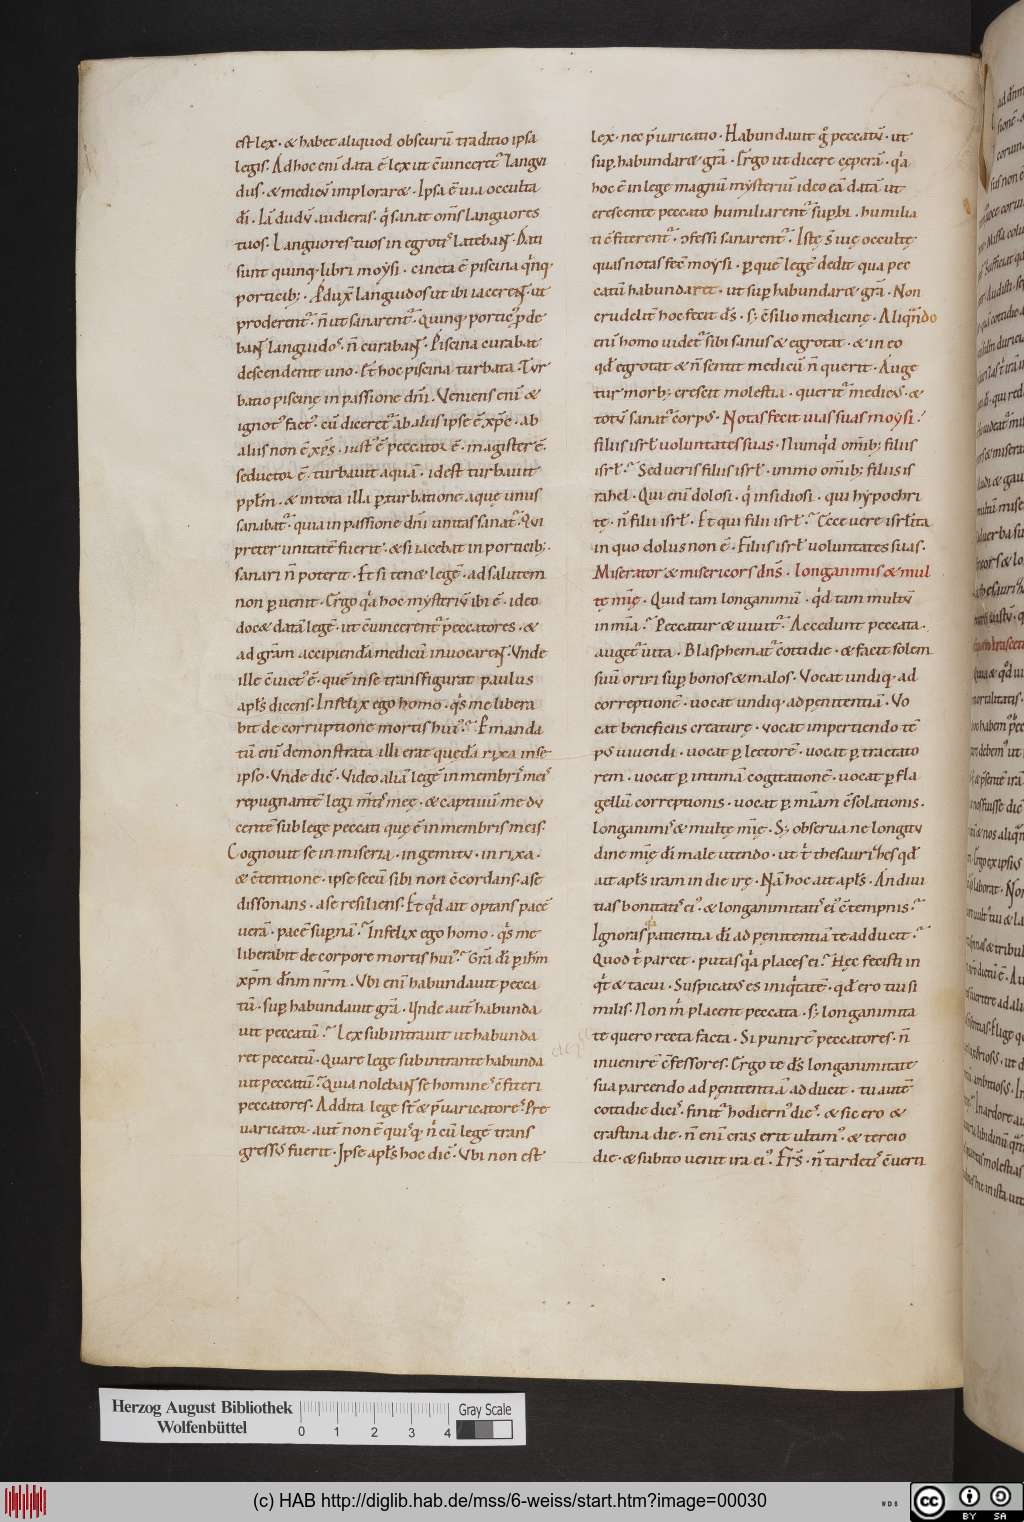 est lex · & habet aliquod obscurū traditio ipsa
legis · Ad hoc enī data ē lex ut c̄uinceret᷑ langui
dus · & medicū implorar& · Ipsa ē uia occulta
dī · Iā dudū audieras · q̍ sanat om̄s languores
tuos · Languores tuos in egroti᷒ lateban̄t · Dati
sunt quinq; libri moysi · cincta ē piscina q̍nq;
porticib; · Aeduxer̄ languidos ut ibi iacerent · ut
proderent᷑ · n̄ ut sanarent᷑ · Quinq; portic᷒ pde
bant languidos · n̄ curabant · Piscina curabat
descendente uno · Et hoc piscina turbata · Tur
batio piscinę in passione dn̄i · Veniens enī &
ignot᷒ fact᷒ · cū diceret᷑ ab aliis ipse ē xp̄c · ab
aliis non ē xp̄s · iust᷒ ē peccator ē · magister ē ·
seductor ē · turbauit aquā · id est turbauit
ppłm · & in tota illa pturbatione aquę unus
sanabat᷑ · quia in passione dn̄i unitas sanat᷑ · Qui
preter unitatē fuerit · & si iacebat in porticib; ·
sanari n̄ poterit · Et si ten& legē · ad salutem
non puenit · Ergo q̍a hoc mysteriū ibi ē · ideo
doc& datā legē · ut c̄uincerent᷑ peccatores · &
ad gr̄am accipiendā medicū inuocarent · Vnde
ille c̄uict᷒ ē · quē in se transfigurat paulus
apłs dicens · Infelix ego homo · q̍s me libera
bit de corruptione mortis hui᷒ · Emanda
tū enī demonstrata illi erat quedā rixa in se
ipso · Vnde dic̄ · Video aliā legē in membri᷒ mei᷒
repugnantē legi m̄ti᷒ meę · & captiuū me du
centē sub lege peccati quę ē in membris meis ·
Cognouit se in miseria · in gemitu · in rixa ·
& c̄tentione · ipse secū sibi non c̄cordans · a se
dissonans · a se resiliens · Et q̍d ait optans pacē
uerā · pacē sup̄nā · Infelix ego homo · q̍s me
liberabit de corpore mortis hui᷒ · Gr̄a dī p ih̄m
xp̄m dn̄m nr̄m · Vbi enī habundauit pecca
tū · sup habundauit gr̄a · Vnde aut̄ habunda
uit peccatū · Lex subintrauit ut habunda
ret peccatū · Quare lege subintrante habunda
uit peccatū · Quia nolebant se homines c̄fiteri
peccatores · Addita lege fc̄i & p̄uaricatores · Pre
uaricator aut̄ non ē quisq; n̍ cū legē trans
gressus fuerit · Ipse apłs hoc dic̄ · Vbi non est
lex · nec p̄uaricatio · Habundauit g̊ peccatū · ut
sup habundar& gr̄a · Ergo ut dicere ceperā · q̍a
hoc ē in lege magnū mysteriū ideo eā datā ut
crescente peccato humiliarent᷑ supbi · humilia
ti c̄fiterent᷑ · ɔfessi sanarent᷑ · Istę s̄ uię occultę
quas notas fec̄ moysi · p quē legē dedit qua pec
catū habundaret · ut sup habundar& gr̄a · Non
crudelit̄ hoc fecit ds̄ · s; c̄silio medicinę · Aliquando
enī homo uidet᷑ sibi sanus & egrotat · & in eo
qd̄ egrotat & n̄ sentit medicū n̄ querit · Auge
tur morb; crescit molestia · querit᷑ medicus · &
totū sanat᷑ corpus · Notas fecit uias suas moysi ·
filiis isrł uoluntates suas · Numq̍d om̄ib; filiis
isrł · Sed ueris filiis isrł · immo om̄ib; filiis is
rahel · Qui enī dolosi · q̍ insidiosi · qui hypochri
tę · n̄ filii isrł · Et qui filii isrł · Ecce uere isrłita
in quo dolus non ē · Filiis isrł uoluntates suas ·
Miserator & misericors dn̄s · longanimis & mul
tę mīę · Quid tam longanimū · q̍d tam multū
in mīa · Peccatur & uiuit᷑ · Accedunt peccata ·
auget᷑ uita · Blasphemat᷑ cottidie · & facit solem
suū oriri sup bonos & malos · Vocat undiq; ad
correptionē · uocat undiq; ad penitentiā · Vo
cat beneficiis creaturę · vocat impertiendo tē
pus uiuendi · uocat p lectorē · uocat p tractato
rem · uocat p intimā cogitationē · uocat p fla
gellū correptionis · uocat p mīam c̄solationis ·
Longanimi᷒ & multę mīę · S; obserua ne longitu
dine mīę dī male utendo · ut t̍ thesaurizes qd̄
ait apłs iram in die irę · Nā hoc ait apłs · An diui
tias bonitati᷒ ei᷒ · & longanimitati᷒ ei᷒ c̄tempnis ·
Ignoras patientia dī ad penitentiā te adducit ·
Quod t̍ parcit · putas q̍a places ei · Hęc fecisti in
q̍t & tacui · Suspicatus es iniq̍tatē · qd̄ ero tui si
milis · Non m̍ placent peccata · s; longanimita
te quero recta facta · Si punirē peccatores · n̄
inuenirē c̄fessores · Ergo te ds̄ longanimitate
sua parcendo ad penitentiā adducit · tu autē
cottidie dici᷒ · finit᷑ hodiern᷒ dies · & sic ero &
crastina die · n̄ enī cras erit ultim᷒ · & tercio
die · & subito uenit ira ei᷒ · Frs̄ · n̄ tardeti᷒ c̄uerti
Herzog August Bibliothek
Wolfenbüttel
0 1 2 3 4
Gray Scale
(c) HAB http://diglib.hab.de/mss/6-weiss/start.htm?image=00030
WDB
cc
BY SA